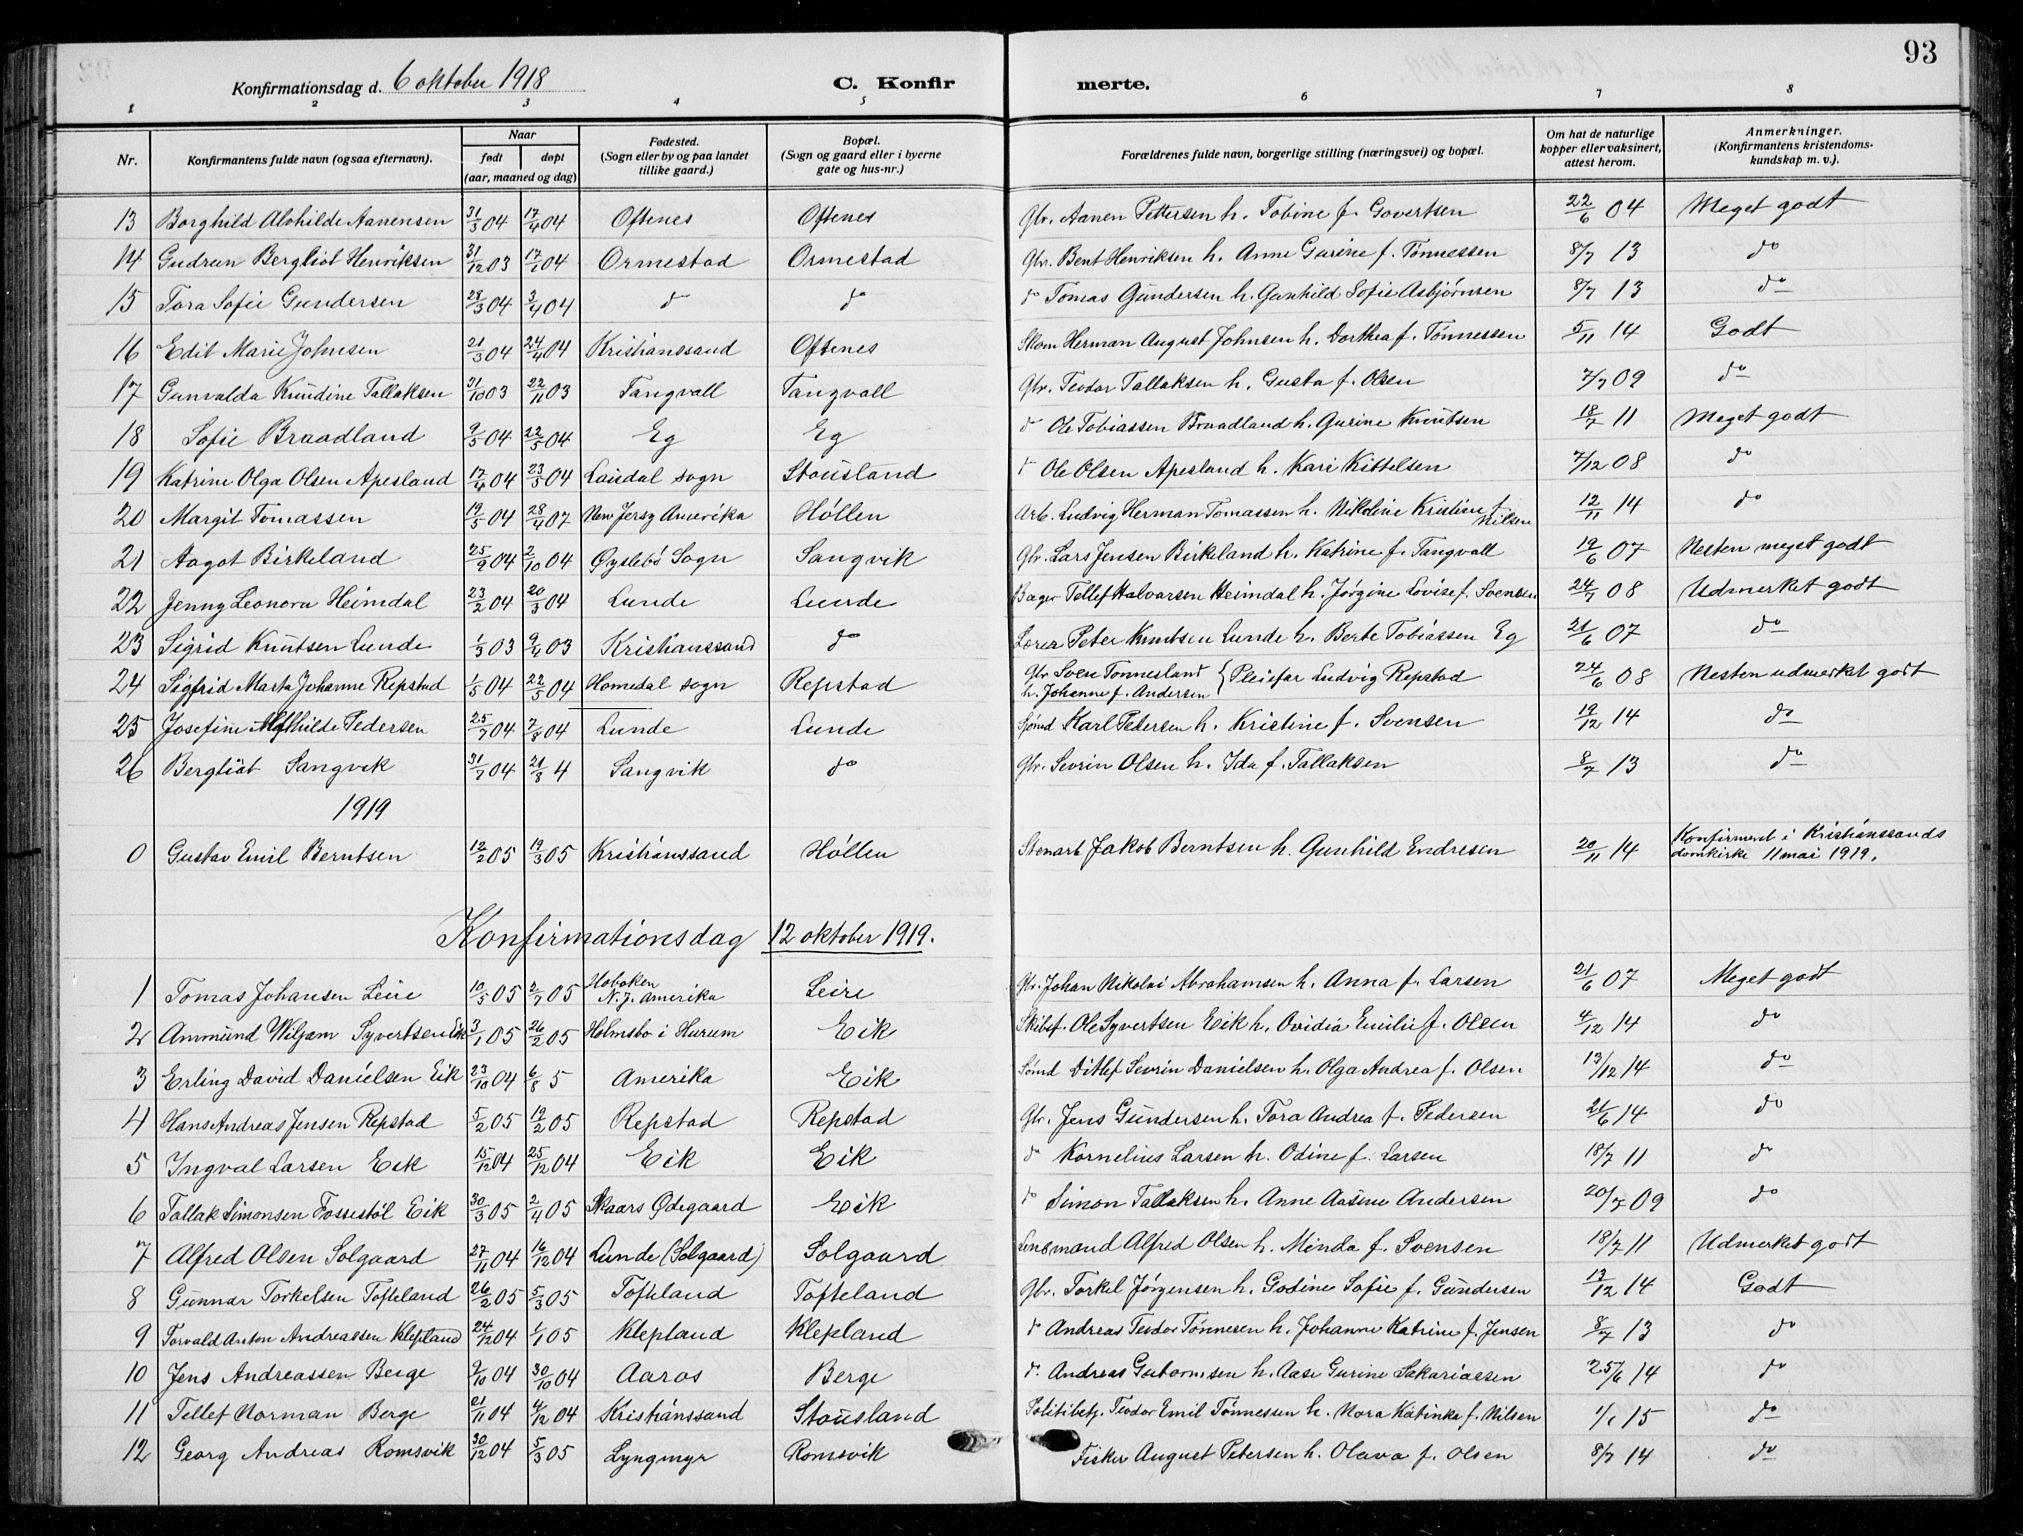 93
Konfirmationsdag d. 6 oktober 1918 C. Konfir merte.
1 2 3 4 5 6 7 8
Nr. Konfirmantens fulde navn (ogsaa efternavn). Naar født døpt (aar, maaned og dag) Fødested. (Sogn eller by og paa landet tillike gaard.) Bopæl. (Sogn og gaard eller i byerne gate og hus-nr.) Forældrenes fulde navn, borgerlige stilling (næringsvei) og bopæl. Om hat de naturlige kopper eller vaksinert, attest herom. Anmerkninger. (Konfirmantens kristendoms-kundskap m. v.).
13 Borghild Alvhilde Aanensen 31/3 04 17/4 04 Oftenes Oftenes Gbr. Aanen Pettersen h. Tobine f. Govertsen 22/6 04 Meget godt
14 Gudrun Bergliot Henriksen 31/12 03 17/1 04 Ormestad Ormestad Gbr. Bent Henriksen h. Anne Gurine f. Tønnessen 8/7 13 do
15 Tora Sofie Gundersen 28/3 04 3/4 04 do do do Tomas Gundersen h. Gunhild Sofie Asbjørnsen 8/7 13 do
16 Edit Marie Johnsen 21/3 04 24/4 04 Kristianssand Oftenes Skom Herman August Johnsen h. Dorthea f. Tønnessen 5/11 14 Godt
17 Gunvalda Knudine Tallaksen 31/10 03 22/11 03 Tangvall Tangvall Gbr. Teodor Tallaksen h. Gusta f. Olsen 7/7 09 do
18 Sofie Braadland 9/5 04 22/5 04 Eg Eg do Ole Tobiassen Braadland h. Gurine Knutsen 18/7 11 Meget godt
19 Katrine Olga Olsen Apesland 17/4 04 23/5 04 Laudal sogn Stousland do Ole Olsen Apesland h. Kari Kittelsen 7/12 08 do
20 Margit Tomassen 19/5 04 28/4 07 New Jersy Amerika Høllen Arb. Ludvig Herman Tomassen h. Nikoline Kristine f. Nilsen 12/11 14 do
21 Aagot Birkeland 25/9 04 2/10 04 Øyslebø Sogn Sangvik Gbr. Lars Jensen Birkeland h. Katrine f. Tangvall 19/6 07 Nesten meget godt
22 Jenny Leonora Heimdal 23/2 04 20/3 04 Lunde Lunde Bager Tellef Halvorsen Heimdal h. Jørgine Lovise f. Svensen 24/7 08 Udmerket godt
23 Sigrid Knutsen Lunde 1/3 03 9/4 03 Kristianssand do Lærer Peter Knutsen Lunde h. Berte Tobiassen Eg 21/6 07 do
24 Sigfrid Marta Johanne Repstad 1/5 04 22/5 04 Homedal sogn Repstad Gbr Sven Tønnesland h. Johanne f. Andersen { Pleiefar Ludvig Repstad 24/6 08 Nesten udmerket godt
25 Josefine Mathilde Pedersen 25/7 04 7/8 04 Lunde Lunde Sjømd Karl Pedersen h. Kristine f. Svensen 19/12 14 do
26 Bergliot Sangvik 31/7 04 21/8 4 Sangvik do Gbr. Sevrin Olsen h. Ida f. Tallaksen 8/7 13 do
1919
0 Gustav Emil Berntsen 12/2 05 19/3 05 Kristianssand Høllen Stenarb Jakob Berntsen h. Gunhild Endresen 20/11 14 Konfirmert i Kristianssands domkirke 11 mai 1919.
Konfirmationsdag 12 oktober 1919.
1 Tomas Johansen Leire 10/5 05 2/7 05 Hoboken N. J. Amerika Leire Gbr. Johan Nikolai Abrahamsen h. Anna f. Larsen 21/6 07 Meget godt
2 Ammund Wiljam Syvertsen Eik 3/1 05 26/2 05 Holmsbo i Hurum Eik Skibsf. Ole Syvertsen Eik h. Ovidia Emilie f. Olsen 4/12 14 do
3 Erling David Danielsen Eik 23/10 04 6/8 5 Amerika Eik Sømd Ditlef Sevrin Danielsen h. Olga Andrea f. Olsen 13/12 14 do
4 Hans Andreas Jensen Repstad 5/2 05 19/2 05 Repstad Repstad Gbr. Jens Gundersen h. Tora Andrea f. Pedersen 21/6 14 do
5 Ingval Larsen Eik 15/12 04 25/12 04 Eik Eik do Kornelius Larsen h. Odine f. Larsen 18/7 11 do
6 Tallak Simonsen Fossestøl Eik 30/3 05 2/4 05 Skaars Ødegaard Eik do Simon Tallaksen h. Anne Aasine Andersen 20/7 09 do
7 Alfred Olsen Solgaard 27/11 04 16/12 04 Lunde (Solgaard) Solgaard Lensmand Alfred Olsen h. Minda f. Svensen 18/7 11 Udmerket godt
8 Gunnar Torkelsen Tofteland 26/2 05 5/3 05 Tofteland Tofteland Gbr. Torkel Jørgensen h. Godine Sofie f. Gundersen 13/12 14 Godt
9 Torvald Anton Andreassen Klepland 24/12 04 1/1 05 Klepland Klepland do Andreas Teodor Tønnesen h. Johanne Katrine f. Jensen 8/7 13 do
10 Jens Andreassen Berge 9/10 04 30/10 04 Aaros Berge do. Andreas Guttormsen h. Aase Gurine Sakariassen 25/6 14 do
11 Tellef Norman Berge 21/11 04 4/12 04 Kristianssand Stousland Politibetj. Teodor Emil Tønnessen h. Nora Katinka f. Nilsen 1/1 15 do
12 Georg Andreas Romsvik 30/12 04 5/3 05 Lyngmyr Romsvik Fisker August Petersen h. Olava f. Olsen 8/7 14 do